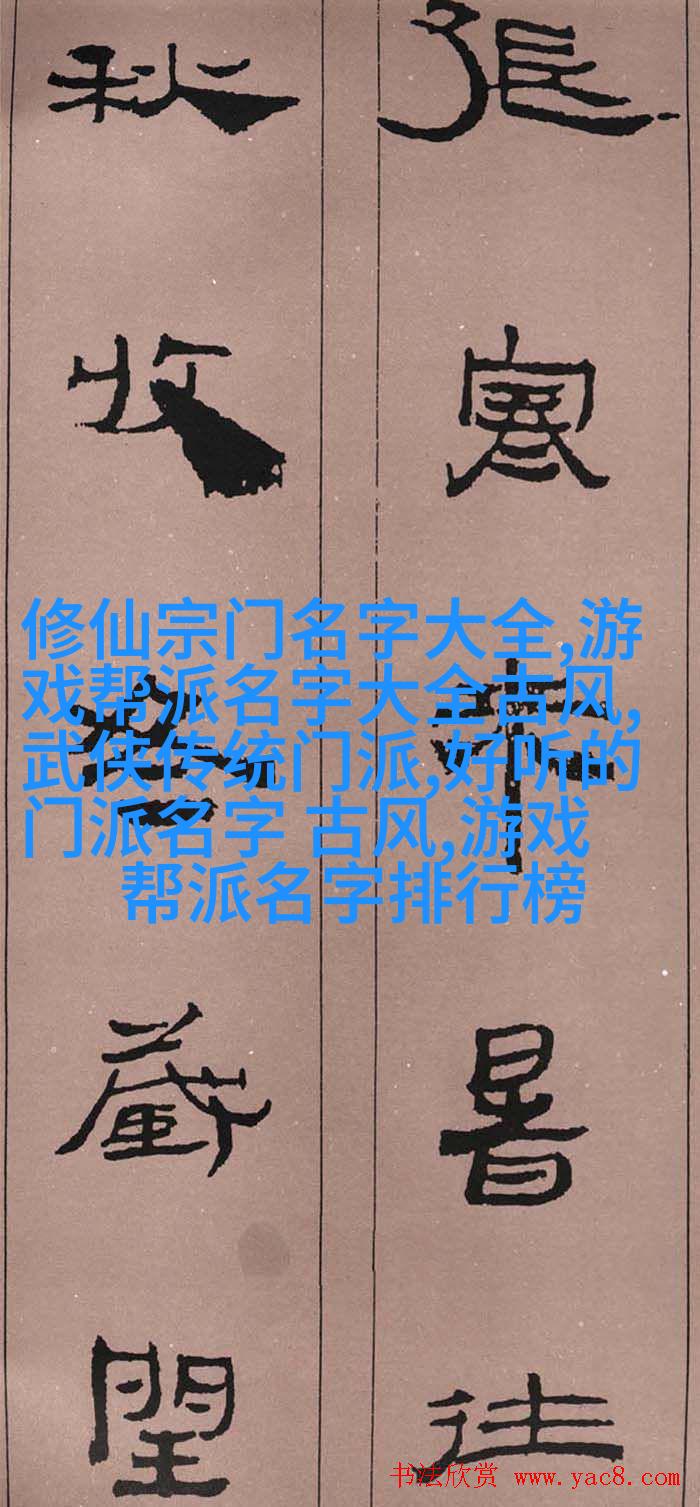 張寒來暑往
秋收冬藏閏
修仙宗门名字大全,游
戏帮派名字大全古风,
武侠传统门派,好听的
门派名字 古风,游戏
帮派名字排行榜
书法欣赏 www.yac8.com